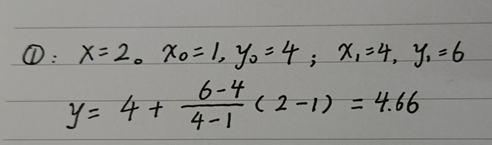 ①: x=2。 x₀=1, y₀=4 ; x₁=4, y₁=6
y= 4 + \frac{6-4}{4-1} (2-1) = 4.66